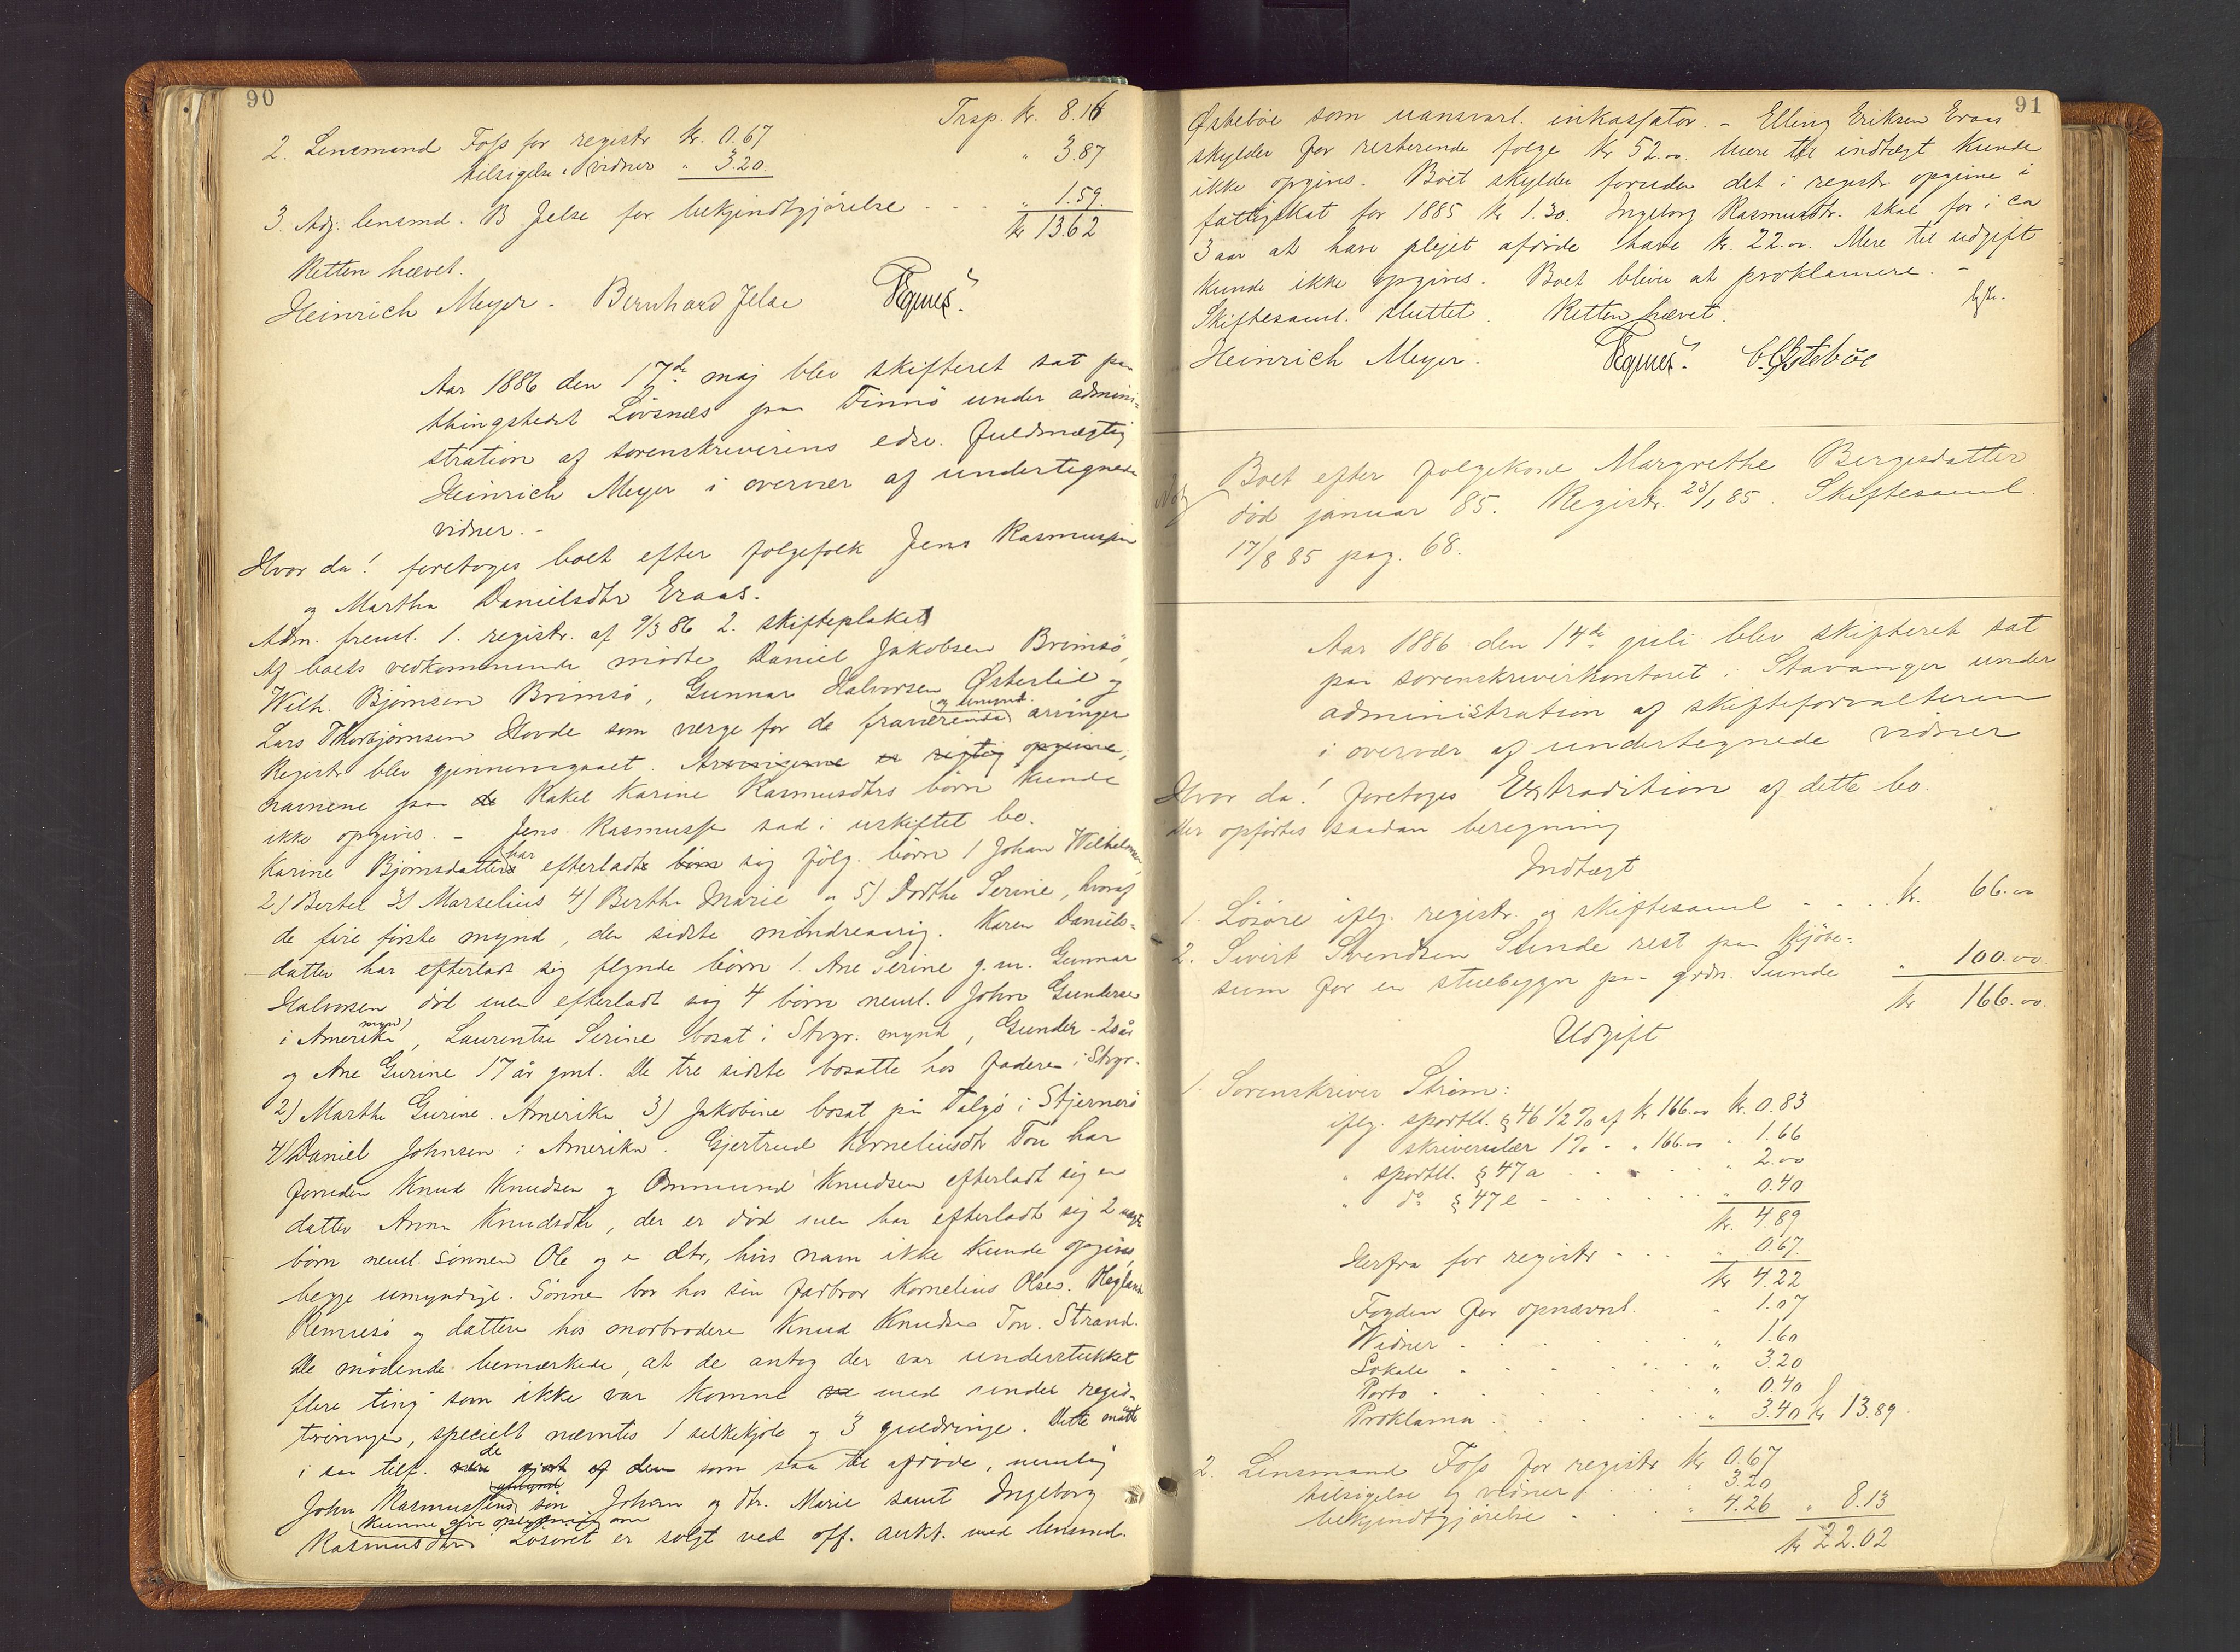 90
Trsp. kr. 8.16
2. Lensmand Foss for registr kr. 0.67
tilsigelse & vidner " 3.20 " 3.87
3. Adj. lensmd. B Jelse for bekjendtgjörelse - - - " 1.59.
kr 13.62
Retten hævet.
Heinrich Meyer - Bernhard Jelse
Aar 1886 den 17de maj blev skifteret sat paa
thingstedet Lövsnæs paa Finnö under admini-
stration af sorenskriverens edsv. fuldmægtig
Heinrich Meyer i overvær af undertegnede
vidner. -
Hvor da! foretoges boet efter folgefolk Jens Rasmussen
og Martha Danielsdtr Eraas.
Adm. freml. 1. registr. af 9/3 86 2. skifteplakat
Af boets vedkommende mödte Daniel Jakobsen Brimsö,
Wilh. Björnsen Brimsö, Gunnar Halvorsen Østerlid og
og umynd.
Lars Thorbjörnsen Hovde som værge for de fraværende arvinger
Registr blev gjennemgaaet. Arvingerne er rigtig opgivne,
navnene paa de Rakel Karine Rasmusdtrs börn kunde
ikke opgives. - Jens Rasmussen sad i uskiftet bo.
har
Karine Björnsdatter efterladt börn sig fölg. börn 1 Johan Wilhelmsen,
2) Bertel 3) Marselius 4) Berthe Marie og 5) Dorthe Serine, hvoraf
de fire förste mynd, den sidste mindreaarig. Karen Daniels-
datter har efterladt sig flgnde börn 1. Ane Serine g. m. Gunnar
Halvorsen, död men efterladt sig 4 börn neml. John Gundersen
mynd
i Amerika, Laurentse Serine bosat i Stvgr. mynd, Gunder - 20 år
og Ane Gurine 17 år gml. De tre sidste bosatte hos faderen i Stvgr.
2) Marthe Gurine. Amerika 3) Jakobine bosat på Talgö i Stjernerö
4) Daniel Johnsen i Amerika. Gjertrud Korneliusdtr Tou har
foruden Knud Knudsen og Ommund Knudsen efterladt sig en
datter Anna Knudsdtr, der er död men har efterladt sig 2
börn neml. sönnen Ole og en dtr, hvis navn ikke kunde opgives,
begge umyndige. Sönnen bor hos sin farbror Kornelius Olsen. Hegland
Rennesö og datteren hos morbroderen Knud Knudsen Tou. Strand.
De mödende bemærkede, at de antog der var understukket
flere ting som ikke var komne med under regis-
treringen, specielt nævntes 1 silkekjole og 3 guldringe. Dette måtte
de
i saa tilf. være gjort af dem som saa til afdöde, nemlig
John Rasmussens sön Johan og dtr. Marie samt Ingeborg
kunne give oplysning om
Rasmusdtr. Lösöret er solgt ved off. aukt. med lensmd.
91
Østeböe som uansvarl. inkassator. - Elling Eriksen Eraas
skylder for resterende folge kr 52.00. Mere til indtægt kunde
ikke opgives. Boet skylder foruden det i registr. opgivne i
fattigskat for 1885 kr 1.30. Ingeborg Rasmusdtr. skal for i ca
3 aar at have plejet afdöde have kr. 22.00. Mere til udgift
kunde ikke opgives. Boet bliver at proklamere. -
Skiftesaml. sluttet. Retten hævet.
Heinrich Meyer. Østeböe
Boet efter folgekone Margrethe Bergesdatter
död januar 85. Registr. 23/1 85. Skiftesaml.
17/8 85 pag. 68.
Aar 1886 den 14de juli blev skifteret sat
paa sorenskriverkontoret i Stavanger under
administration af skifteforvalteren
i overvær af undertegnede vidner
Hvor da! foretoges Extradition af dette bo.
Der opförtes saadan beregning
Indtægt
1. Lösöre iflg. registr. og skiftesaml - - - kr. 66.00
2. Sivert Svendsen Sunde rest paa kjöbe-
sum for en stuebygn paa grdn. Sunde " 100.00
kr 166.00.
Udgift
1. Sorenskriver Ström:
iflg. sportl. § 46 1/2 % af kr 166.00 kr. 0.83
" skriversalær 1% - " 166.00 " 1.66
" sportl. § 47 a - - - " 2.00
" do § 47 e - - - - " 0.40
kr. 4.89
Herfra for registr - - - " 0.67.
kr 4.22
Fogden for opnævnl. " 1.07
Widner - - - - " 1.60
Lokale - - - - " 3.20
Porto - - - - " 0.40
Proklama - - - - " 3.40 kr 13.89.
2. Lensmand Foss for registr kr 0.67
tilsigelse og vidner " 3.20
bekjendtgjörelse - - " 4.26 " 8.13
kr 22.02